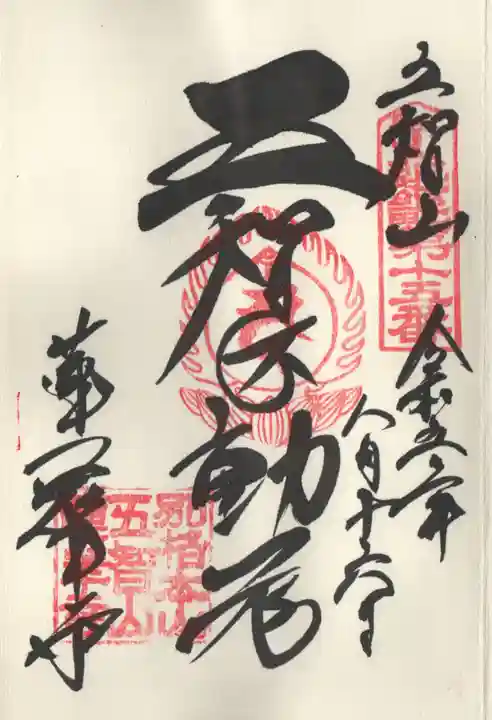 五智山
令和五年
八月十六日
五智不動尊
蓮華寺
別格本山
五智山
蓮華寺